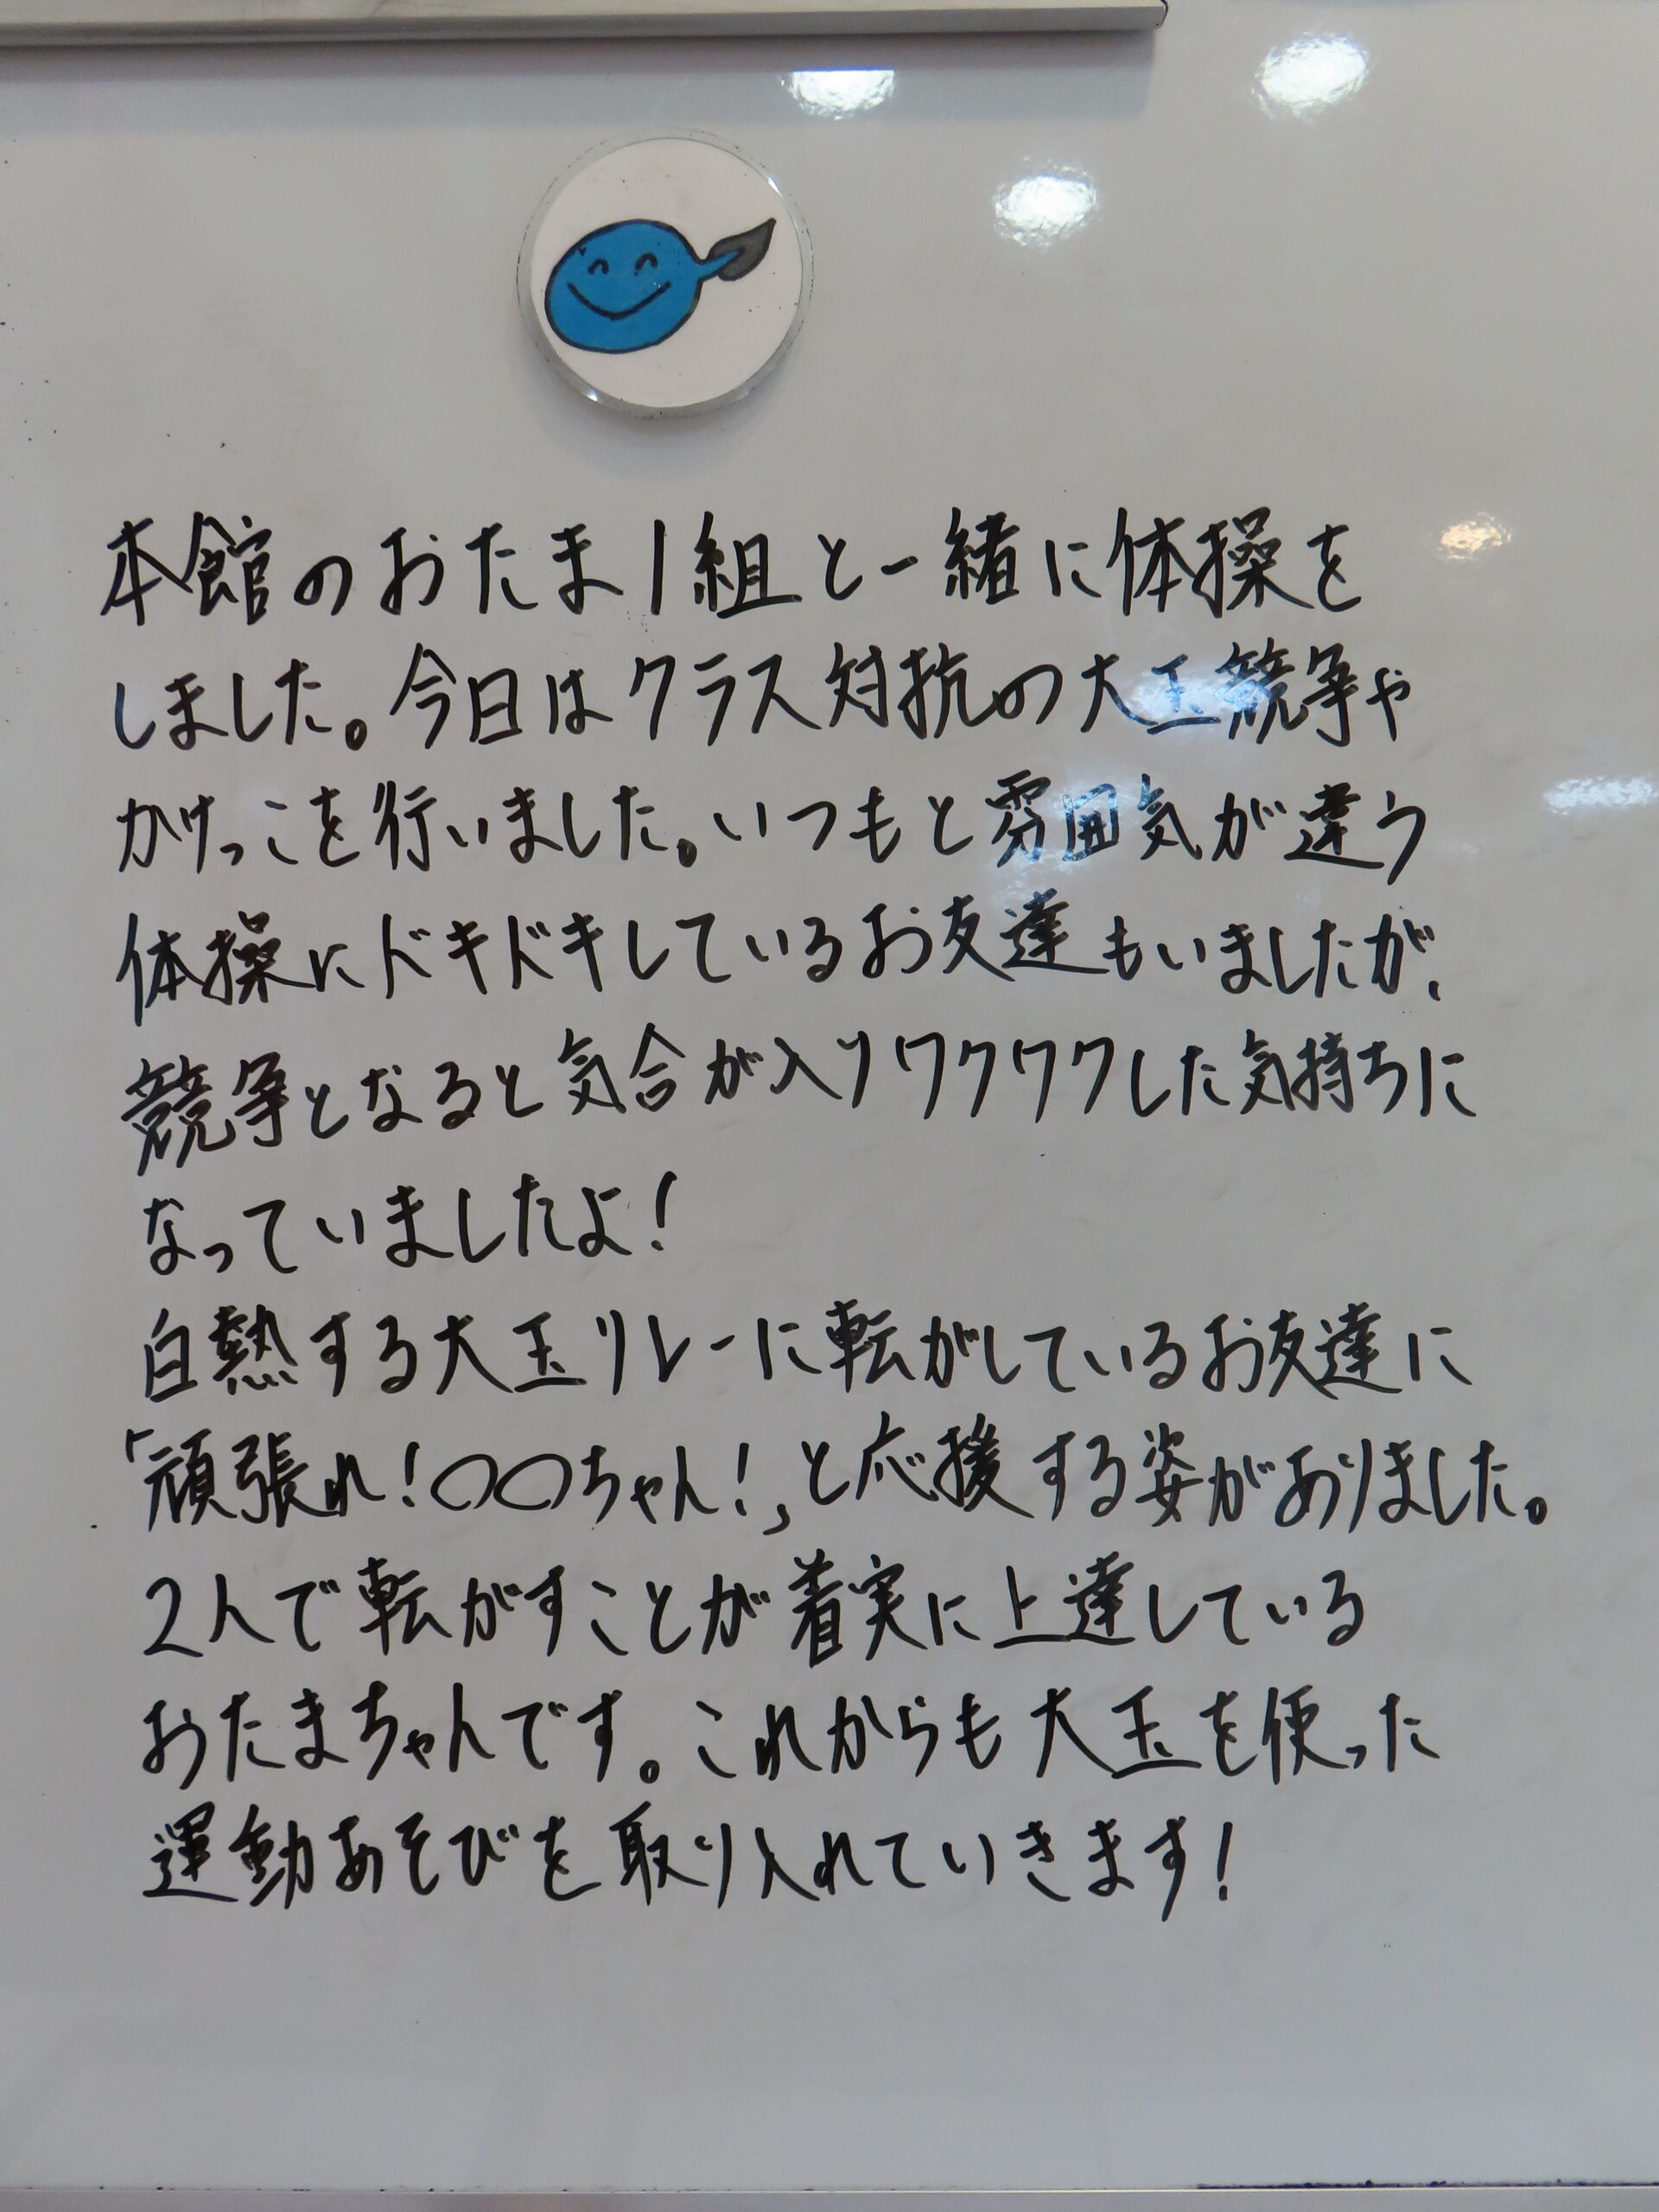 本館のおたま1組と一緒に体操を
しました。今日はクラス対抗の大玉競争や
かけっこを行いました。いつもと雰囲気が違う
体操にドキドキしているお友達もいましたが、
競争となると気合が入りワクワクした気持ちに
なっていましたよ!
白熱する大玉リレーに転がしているお友達に
「頑張れ!〇〇ちゃん!」と応援する姿がありました。
2人で転がすことが着実に上達している
おたまちゃんです。これからも大玉を使った
運動あそびを取り入れていきます!